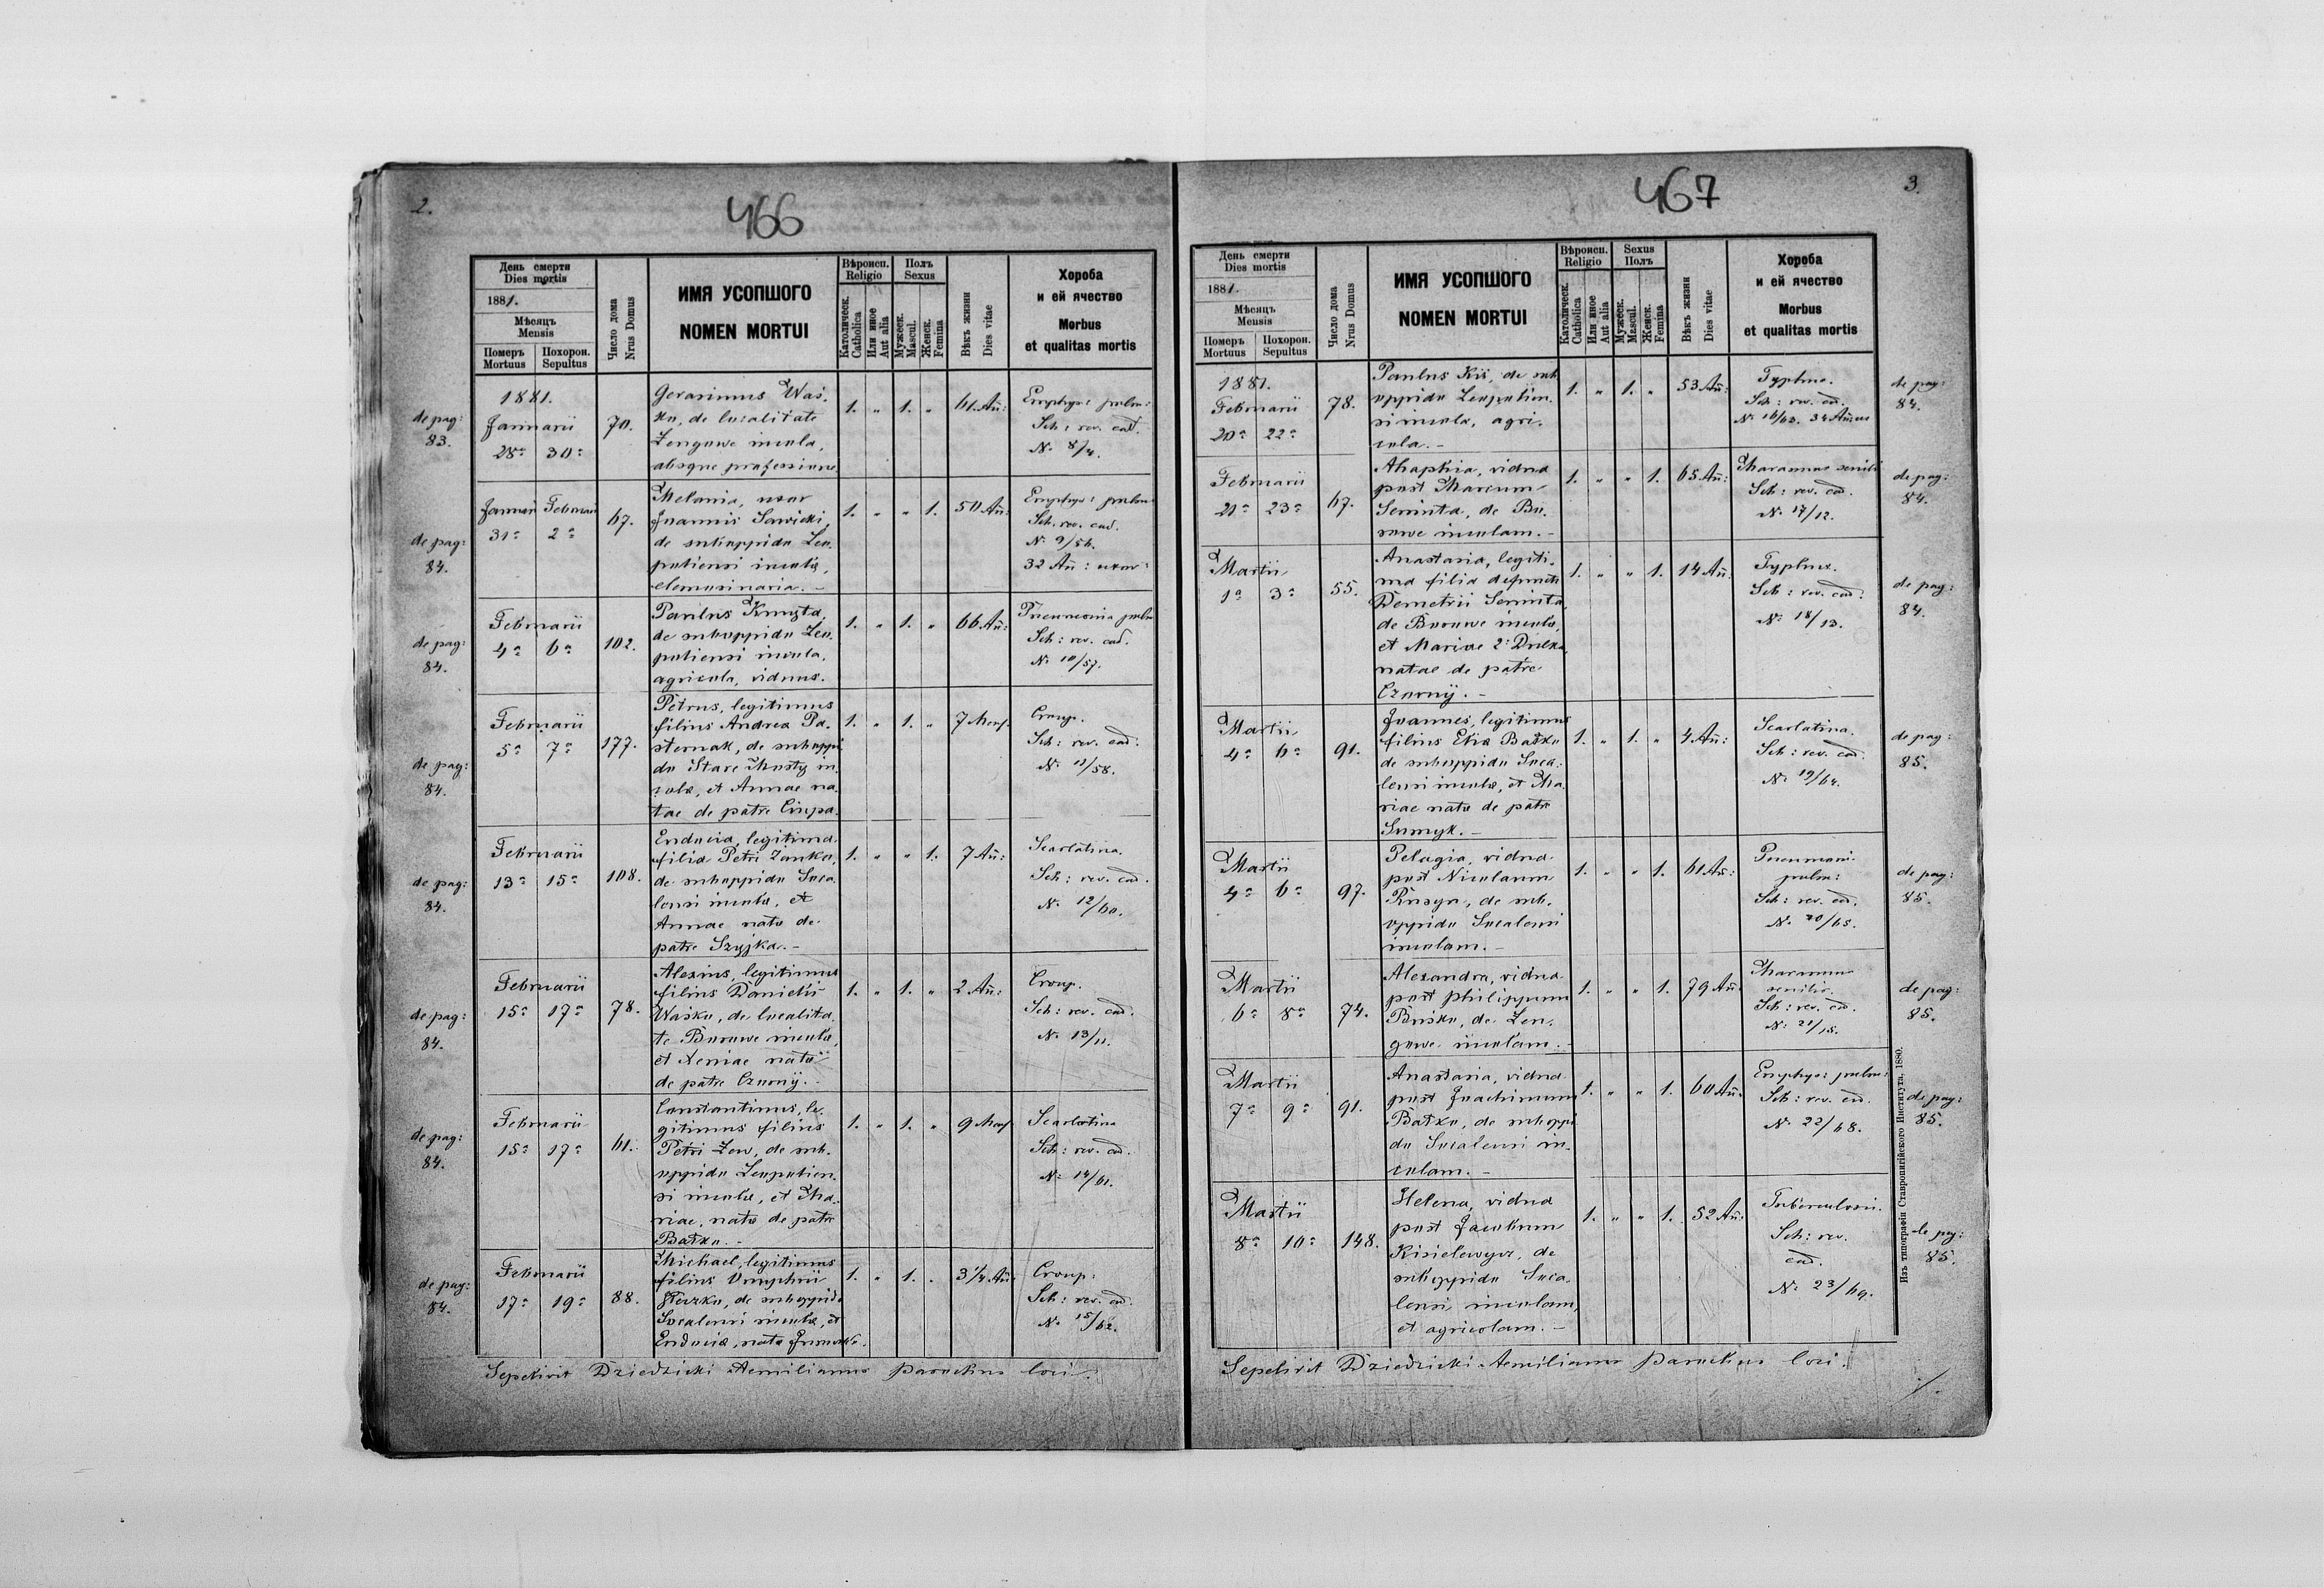 2.
466
День смерти
Dies mortis
1881.
Мѣсяць
Mensis
Померъ
Mortuus
Похорон.
Sepultus
Число дома
Nrus Domus
ИМЯ УСОПШОГО
NOMEN MORTUI
Вѣроисп.
Religio
Католическ.
Catholica
Или иное
Aut alia
Полъ
Sexus
Мужеск.
Mascul.
Женск.
Femina
Вѣкъ жизни
Dies vitae
Хороба
и ей ячество
Morbus
et qualitas mortis
de pag:
83.
1881.
Januarii
28a 30a
70.
Gerasimus Waś-
ko, de localitate
Zengowe incola,
absque professione
1. " 1. " 61. Añ:
Emphys: pulm:
Sch: rev. cad.
N. 8/4.
de pag:
84.
Januar Februar
31a 2a
67.
Melania, uxor
Joannis Sawicki,
de suboppido Leo-
putiensi incolae,
elemosinaria. -
1. " " 1. 50 Añ:
Emphys: pulm
Sch. rev. cad.
N. 9/56.
32 Añ: uxor:
de pag:
84.
Februarii
4a 6a
102.
Paulus
de suboppido Leo-
putiensi incola,
agricola, viduus.
1. " 1. " 66 Añ:
Pneumonia pulm
Sch: rev. cad.
N. 10/57.
de pag:
84.
Februarii
5a 7a
177.
Petrus, legitimus
filius Andrea Pa-
sternak, de suboppi-
do Stare Mosty in-
colae, et Annae na-
tae de patre
1. " 1. " 7 Mens.
Croup.
Sch: rev. cad.
N. 11/58.
de pag:
84.
Februarii
13a 15a
108.
Eudocia, legitima
filia Petri Zanko,
de suboppido Soca-
lensi incolae, et
Annae natae de
patre Szyjka. -
1. " " 1. 7 Añ:
Scarlatina.
Sch: rev. cad.
N. 12/60.
de pag:
84.
Februarii
15a 17a
78.
Alexius, legitimus
filius Danielis
Wasko, de localita-
te Borowe incolae,
et Xeniae natae
de patre Czornij. -
1. " 1. " 2 Añ:
Croup.
Sch: rev. cad.
N. 13/11.
de pag:
84.
Februarii
15a 17a
61.
Constantinus, le-
gitimus filius
Petri Lew, de sub-
oppido Leoputien-
si incolae, et Ma-
riae, natae de patre
Batko. -
1. " 1. " 9 Mens
Scarlatina
Sch: rev. cad.
N. 14/61.
de pag:
84.
Februarii
17a 19a
88.
Michael, legitimus
filius Onuphrii
de suboppido
Socalensi incolae, et
Eudociae, natae
1. " 1. " 3 1/4 Añ:
Croup:
Sch: rev. cad.
N. 15/62.
Sepelivit Dziedzicki Aemilianus parochus loci.
467
3.
День смерти
Dies mortis
1881.
Мѣсяць
Mensis
Померъ
Mortuus
Похорон.
Sepultus
Число дома
Nrus Domus
ИМЯ УСОПШОГО
NOMEN MORTUI
Вѣроисп.
Religio
Католическ.
Catholica
Или иное
Aut alia
Sexus
Полъ
Мужеск.
Mascul.
Женск.
Femina
Вѣкъ жизни
Dies vitae
Хороба
и ей ячество
Morbus
et qualitas mortis
1881.
Februarii
20a 22a
78.
Paulus Kiś, de sub-
oppido Leoputien-
si incola, agri-
cola. -
1. " 1. " 53 Añ:
Typhus.
Sch: rev. cad.
N. 16/63. 34 Añ:
de pag:
84.
Februarii
21a 23a
67.
Ahaphia, vidua
post Marcum
Seniuta, de Bo-
rowe incolam. -
1. " " 1. 65 Añ:
Marasmus senilis
Sch: rev. cad.
N. 17/12.
de pag:
84.
Martii
1a 3a
55.
Anastasia, legiti-
ma filia defuncti
Demetrii Seniuta,
de Borowe incolae,
et Mariae 2°
natae de patre
Czornij. -
1. " " 1. 14 Añ:
Typhus.
Sch: rev. cad.
N. 18/13.
de pag:
84.
Martii
4a 6a
91.
Joannes, legitimus
filius Eliae Batko
de suboppido Soca-
lensi incolae, et Ma-
riae natae de patre
Sumyk. -
1. " 1. " 4 Añ:
Scarlatina.
Sch: rev. cad.
N. 19/64.
de pag:
85.
Martii
4a 6a
97.
Pelagia, vidua
post Nicolaum
de sub-
oppido Socalensi
incolam. -
1. " " 1. 61 Añ:
Pneumoni-
pulm:
Sch: rev. cad.
N. 20/65.
de pag:
85.
Martii
6a 8a
74.
Alexandra, vidua
post Philippum
Buśko, de Zen-
gowe incolam. -
1. " " 1. 79 Añ:
Marasmus
senilis.
Sch: rev. cad.
N. 21/15.
de pag:
85.
Martii
7a 9a
91.
Anastasia, vidua
post Joachimum
Batko, de suboppi-
do Socalensi in-
colam. -
1. " " 1. 60 Añ:
Emphys: pulm:
Sch: rev. cad.
N. 22/68.
de pag:
85.
Martii
8a 10a
148.
Helena, vidua
post Jacobum
Kisielewycz, de
suboppido Soca-
lensi, incolam,
et agricolam. -
1. " " 1. 52 Añ:
Tuberculosis.
Sch: rev.
cad.
N. 23/69.
de pag:
85.
Sepelivit Dziedzicki Aemilianus parochus loci.
Изъ типографіи Ставропигійского Института, 1880.